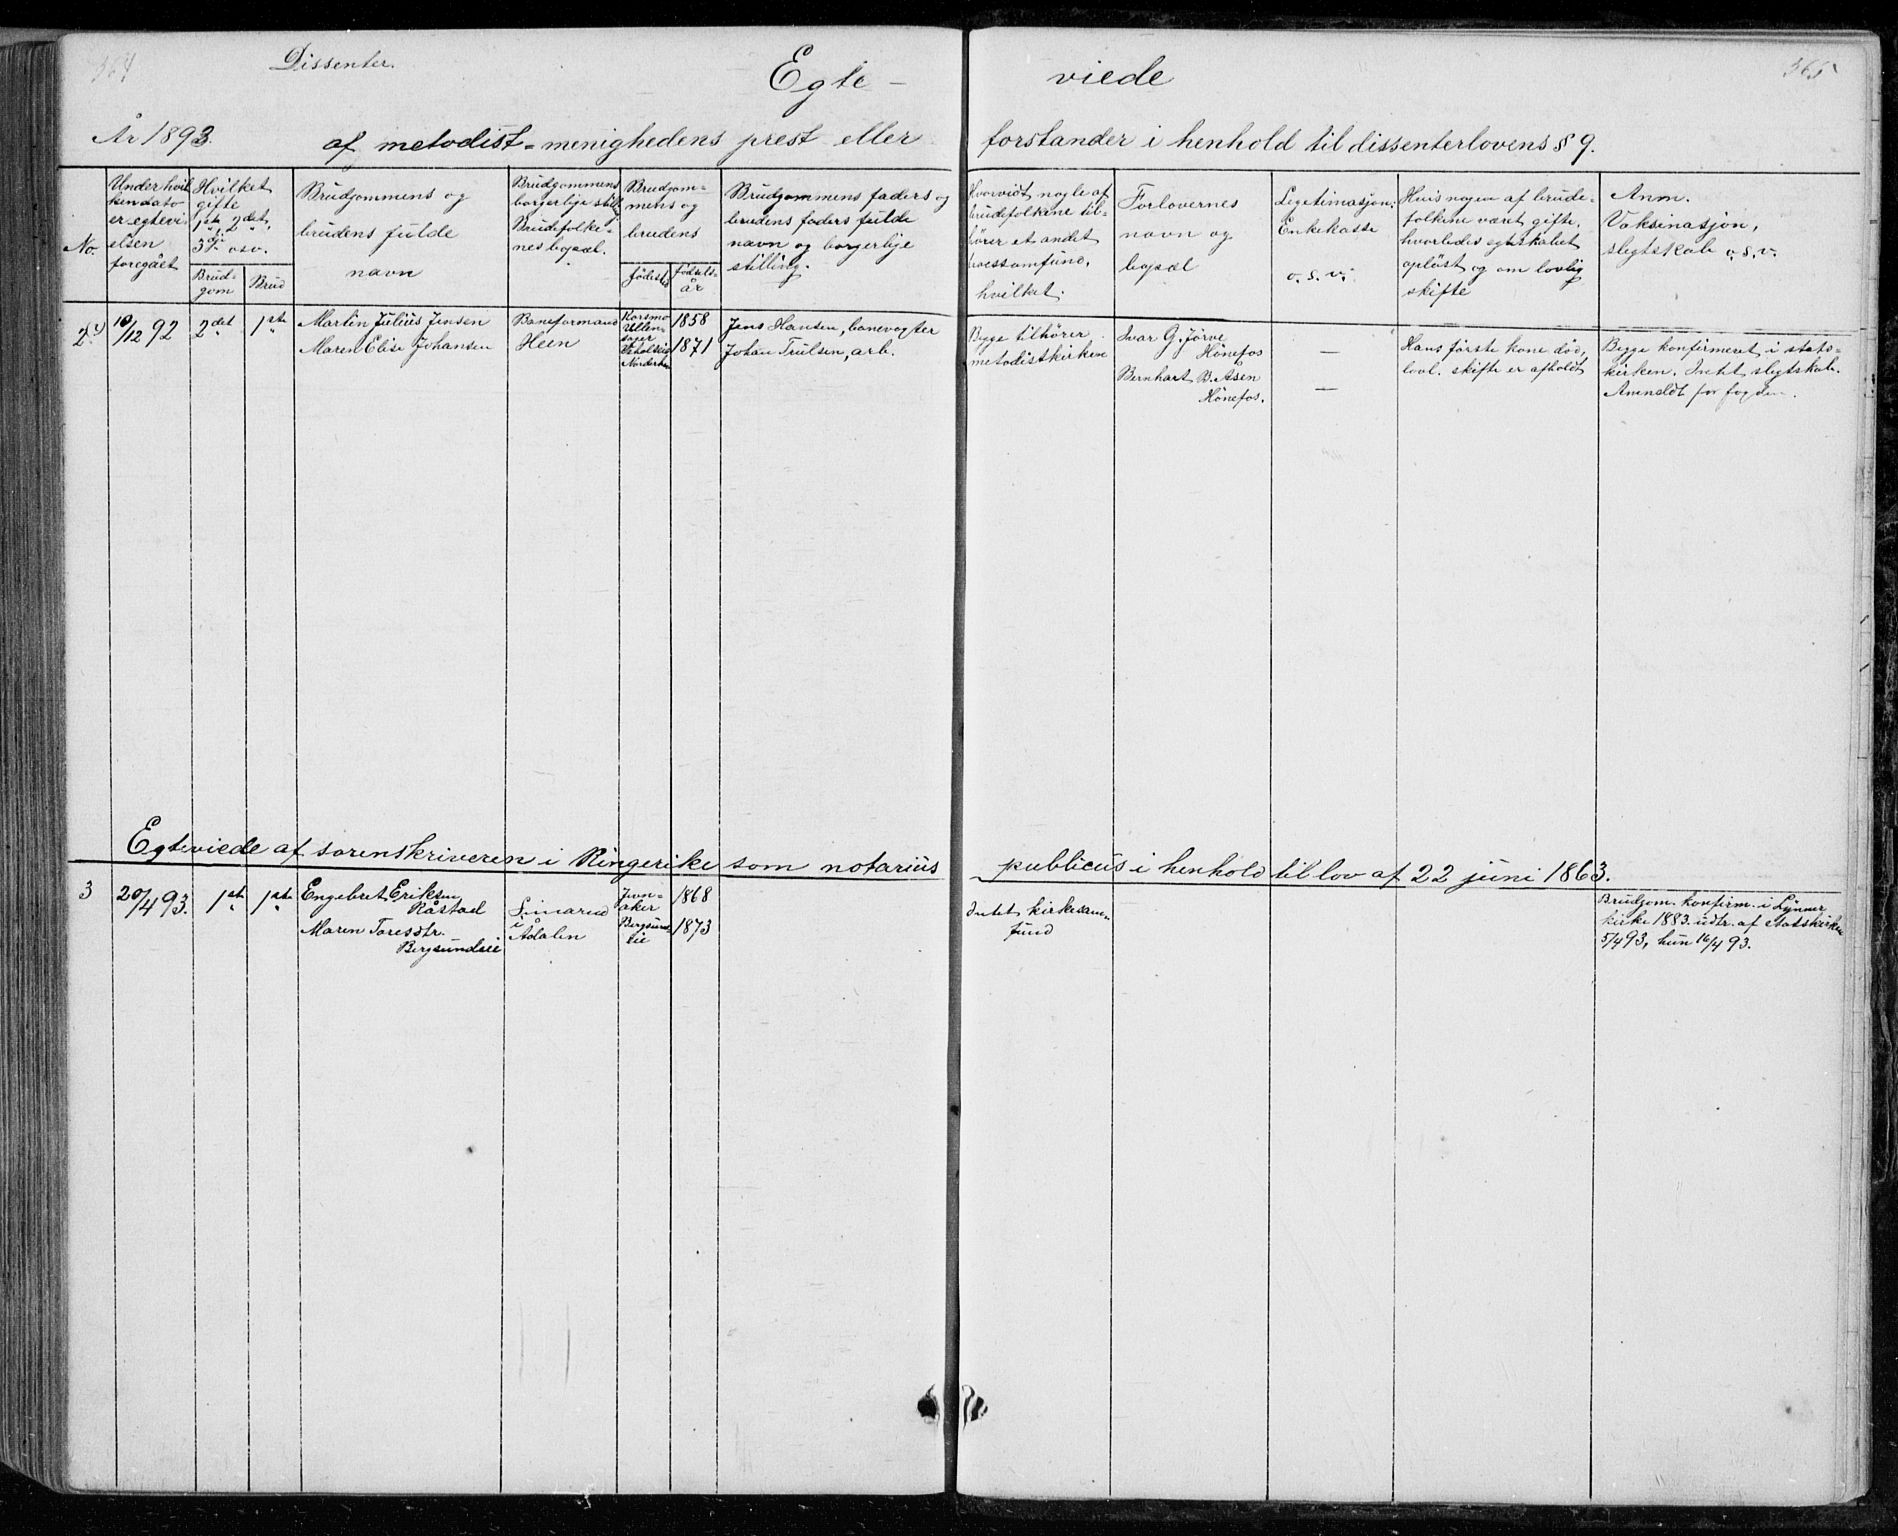 364 Dissenter. 365
Egte - viede
År 1893. af metodist-menighedens prest eller forstander i henhold til dissenterlovens § 9.
No.
Under hvil
ken dato
er egtevi-
elsen
foregået
Hvilket
gifte
1ste, 2det,
3die osv.
Brud-
gom
Brud
Brudgommens og
brudens fulde
navn
Brudgommens
borgerlige still.
Brudefolke-
nes bopæl.
Brudgom-
mens og
brudens
fødested
fødsels-
år
Brudgommens faders og
brudens faders fulde
navn og borgerlige
stilling.
Hvorvidt nogle af
brudefolkene til-
hører et andet
troessamfund,
hvilket.
Forlovernes
navn og
bopæl
Legitimasjon:
Enkekasse
o. s. v.
Hvis nogen af brude-
folkene været gifte,
hvorledes egteskabet
opløst og om lovlig
skifte
Anm.
Vaksinasjon,
slegtskab o. s. v.
2
10/12 92
2det
1ste
Martin Julius Jensen
Maren Elise Johansen
Baneformand
Heen
Korsmo
Ullen-
saker
Norderhov
1858
1871
Jens Hansen, banevogter
Johan Trulsen, arb.
Begge tilhører
metodistkirken
Ivar G. Jörve
Hönefos
Bernhart B. Asen
Hönefos.
—
—
Hans første kone död,
lovl. skifte er afholdt
Begge konfirmeret i stats-
kirken. Intet slegtskab.
Anmeldt for fogden.
Egteviede af sorenskriveren i Ringerike som notarius publicus i henhold til lov af 22 juni 1863.
3
20/4 93.
1ste
1ste
Engebret Eriksen
Råstad
Maren Toresdtr.
Bergsundeie
Simarud
i
Ådalen
Jevn-
aker
Bergsund-
eie
1868
1873
Intet kirkesam-
fund
Brudgom. konfirm. i Lynner
kirke 1883. udtr. af Statskirken
5/4 93, hun 16/4 93.